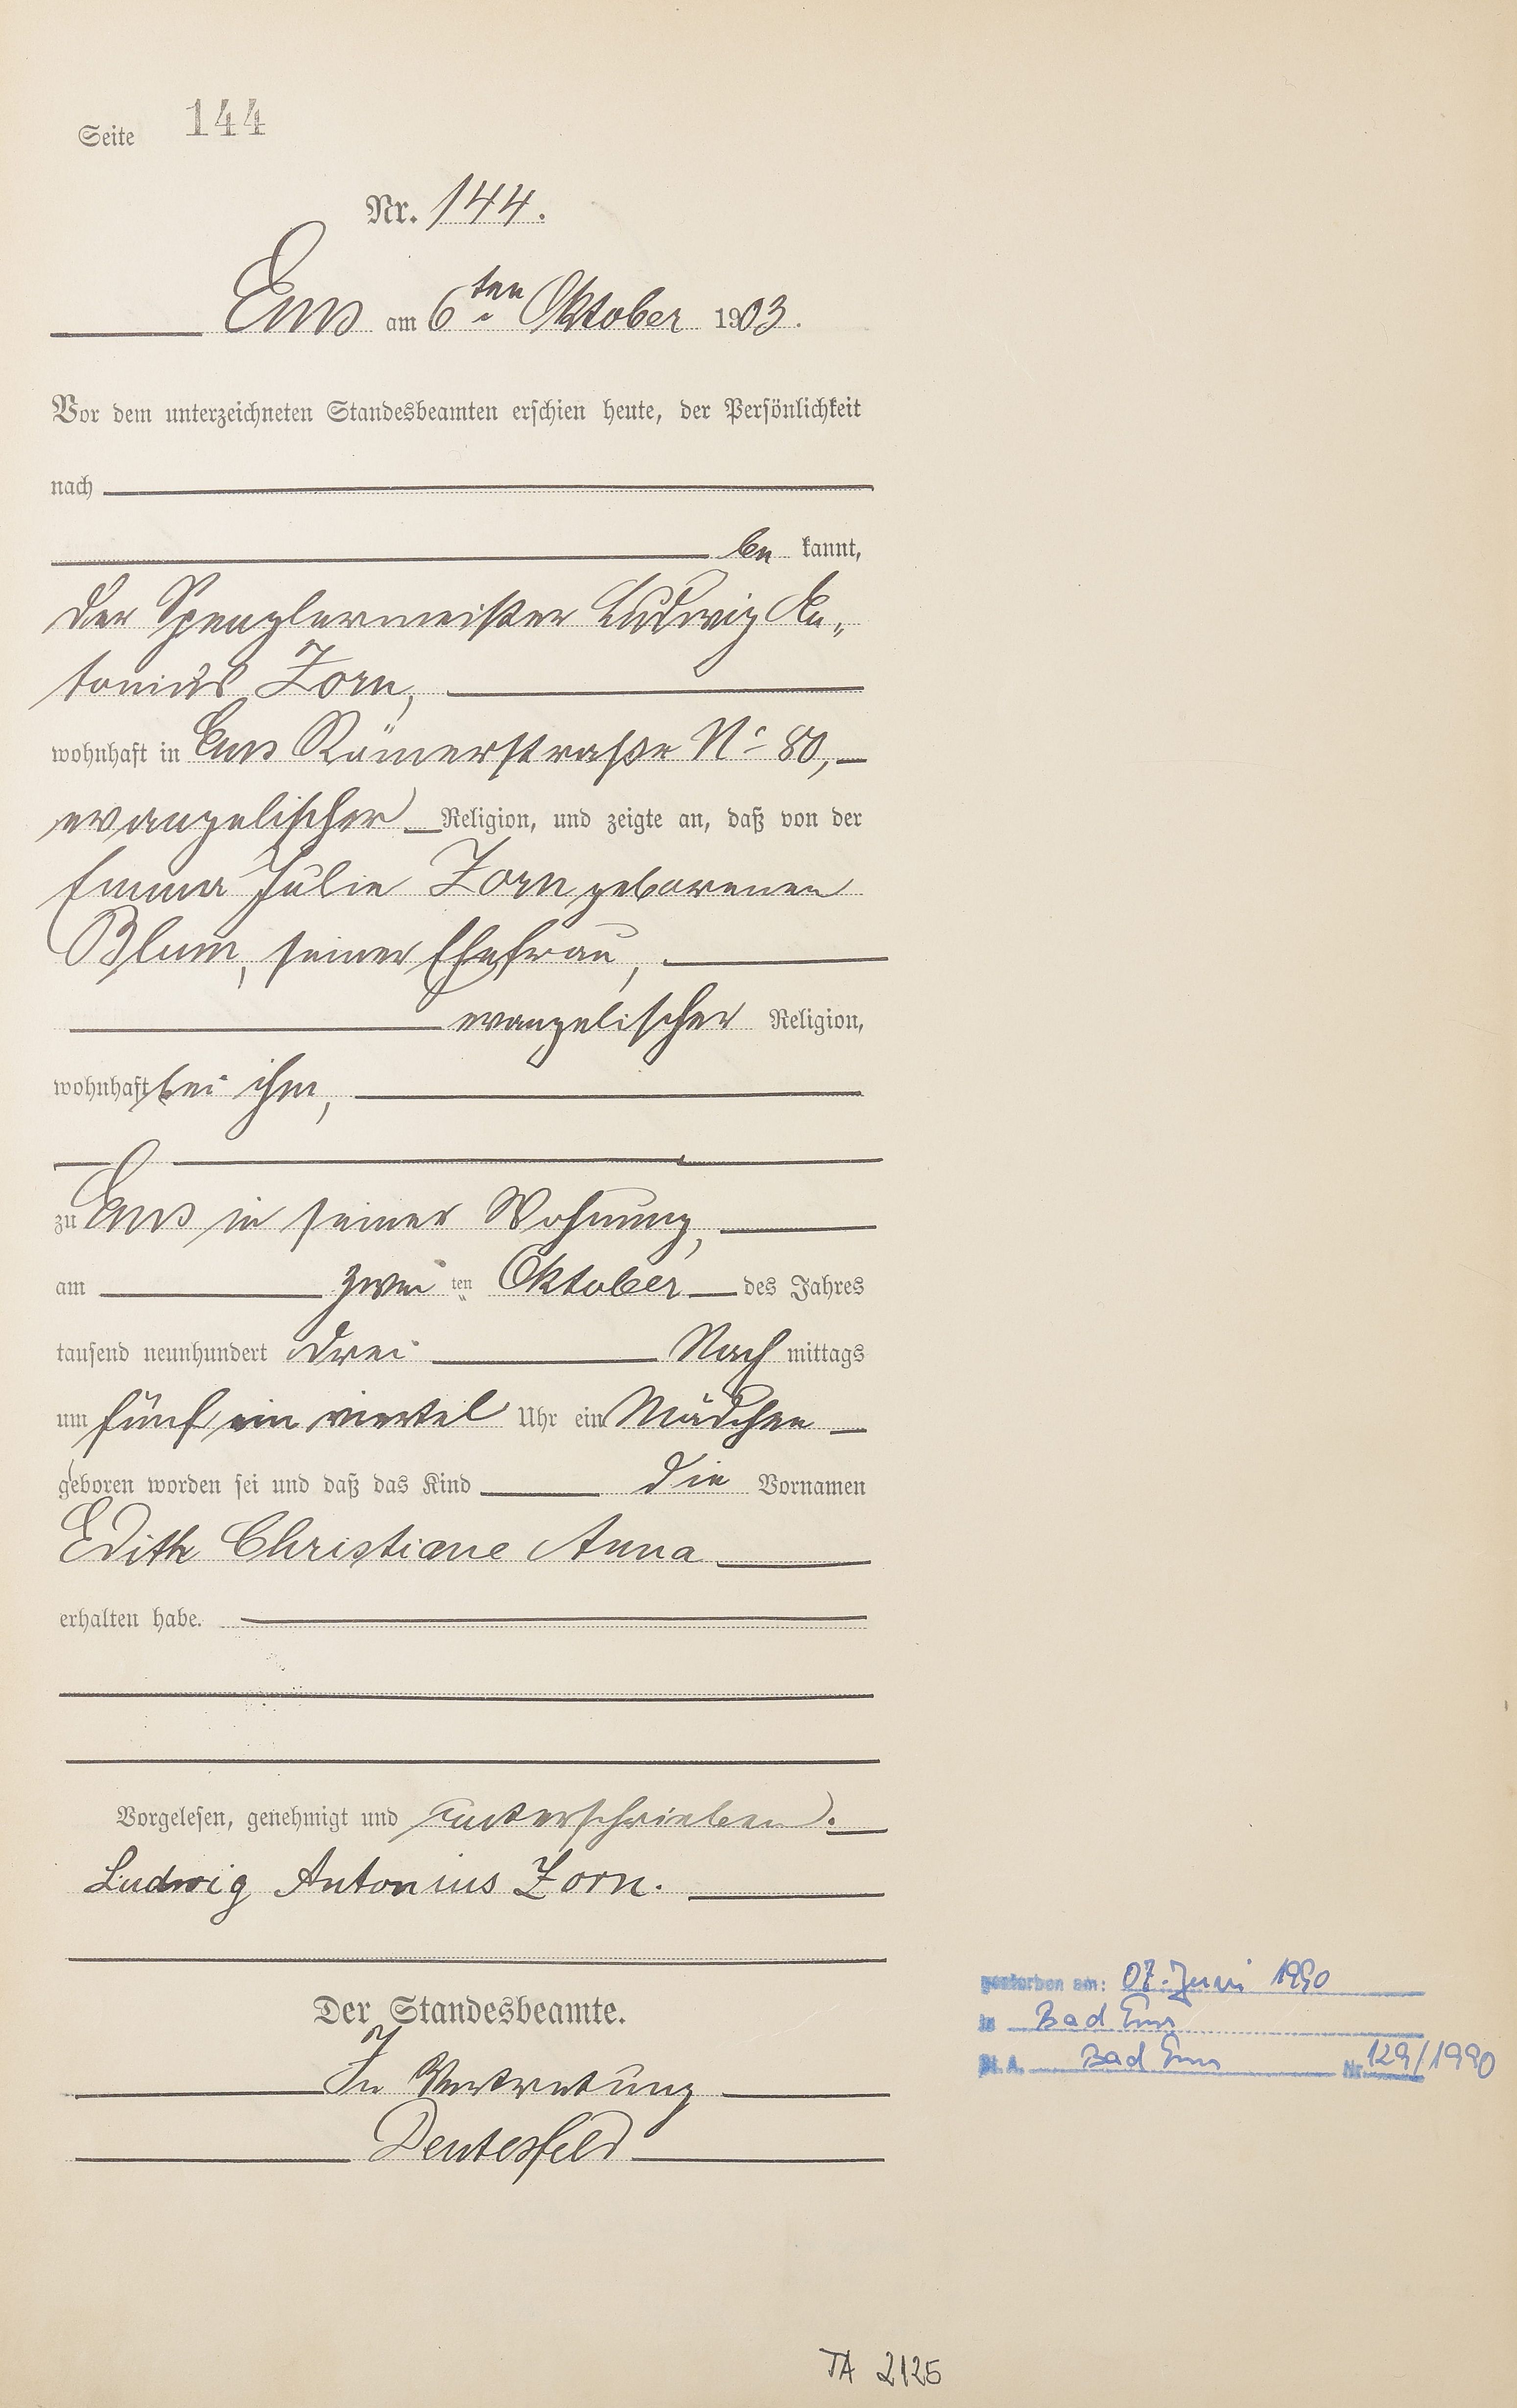 Seite 144
Nr. 144.
Ems am 6ten Oktober 1903.
Vor dem unterzeichneten Standesbeamten erschien heute, der Persönlichkeit
nach
be kannt,
der Spenglermeister Ludwig An„
tonius Zorn,
wohnhaft in Ems Römerstraße No 80,
evangelischer Religion, und zeigte an, daß von der
Emma Julie Zorn geborenen
Blum, seiner Ehefrau,
evangelischer Religion,
wohnhaft bei ihm,
zu Ems in seiner Wohnung,
am zwei ten Oktober des Jahres
tausend neunhundert drei Nach mittags
um fünf ein viertel Uhr ein Mädchen
geboren worden sei und daß das Kind die Vornamen
Edith Christiane Anna
erhalten habe.
Vorgelesen, genehmigt und unterschrieben.
Ludwig Antonius Zorn.
Der Standesbeamte.
In Vertretung
Deutesfeld
gestorben am: 07. Juni 1990
in Bad Ems
St. A. Bad Ems Nr. 129/1990
TA 2125